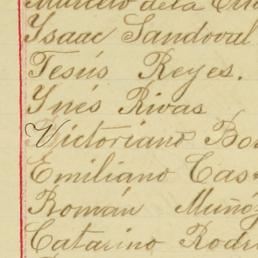 Marcelo de la Cru
Ysaac Sandoval
Jesús Reyes.
Ynés Rivas
Victoriano Bo
Emiliano Cas
Román Muñoz
Catarino Rodr